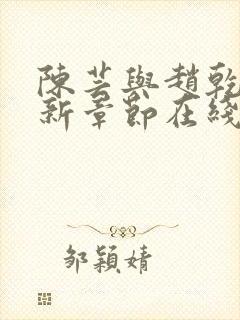 陳芸與趙乾
新章節在綫
鄒穎婧